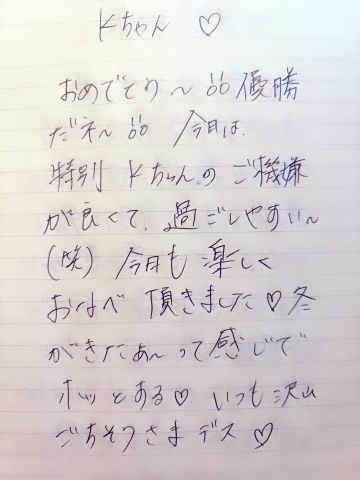 Kちゃん ♡
おめでとう〜!! 優勝
だネ〜!! 今日は、
特別 Kちゃんの ご機嫌
が良くて、過ごしやすい〜
(笑) 今日も 楽しく
おなべ 頂きました♡ 冬
がきたあ〜って感じで
ホッとする♡ いつも沢山
ごちそうさまデス♡